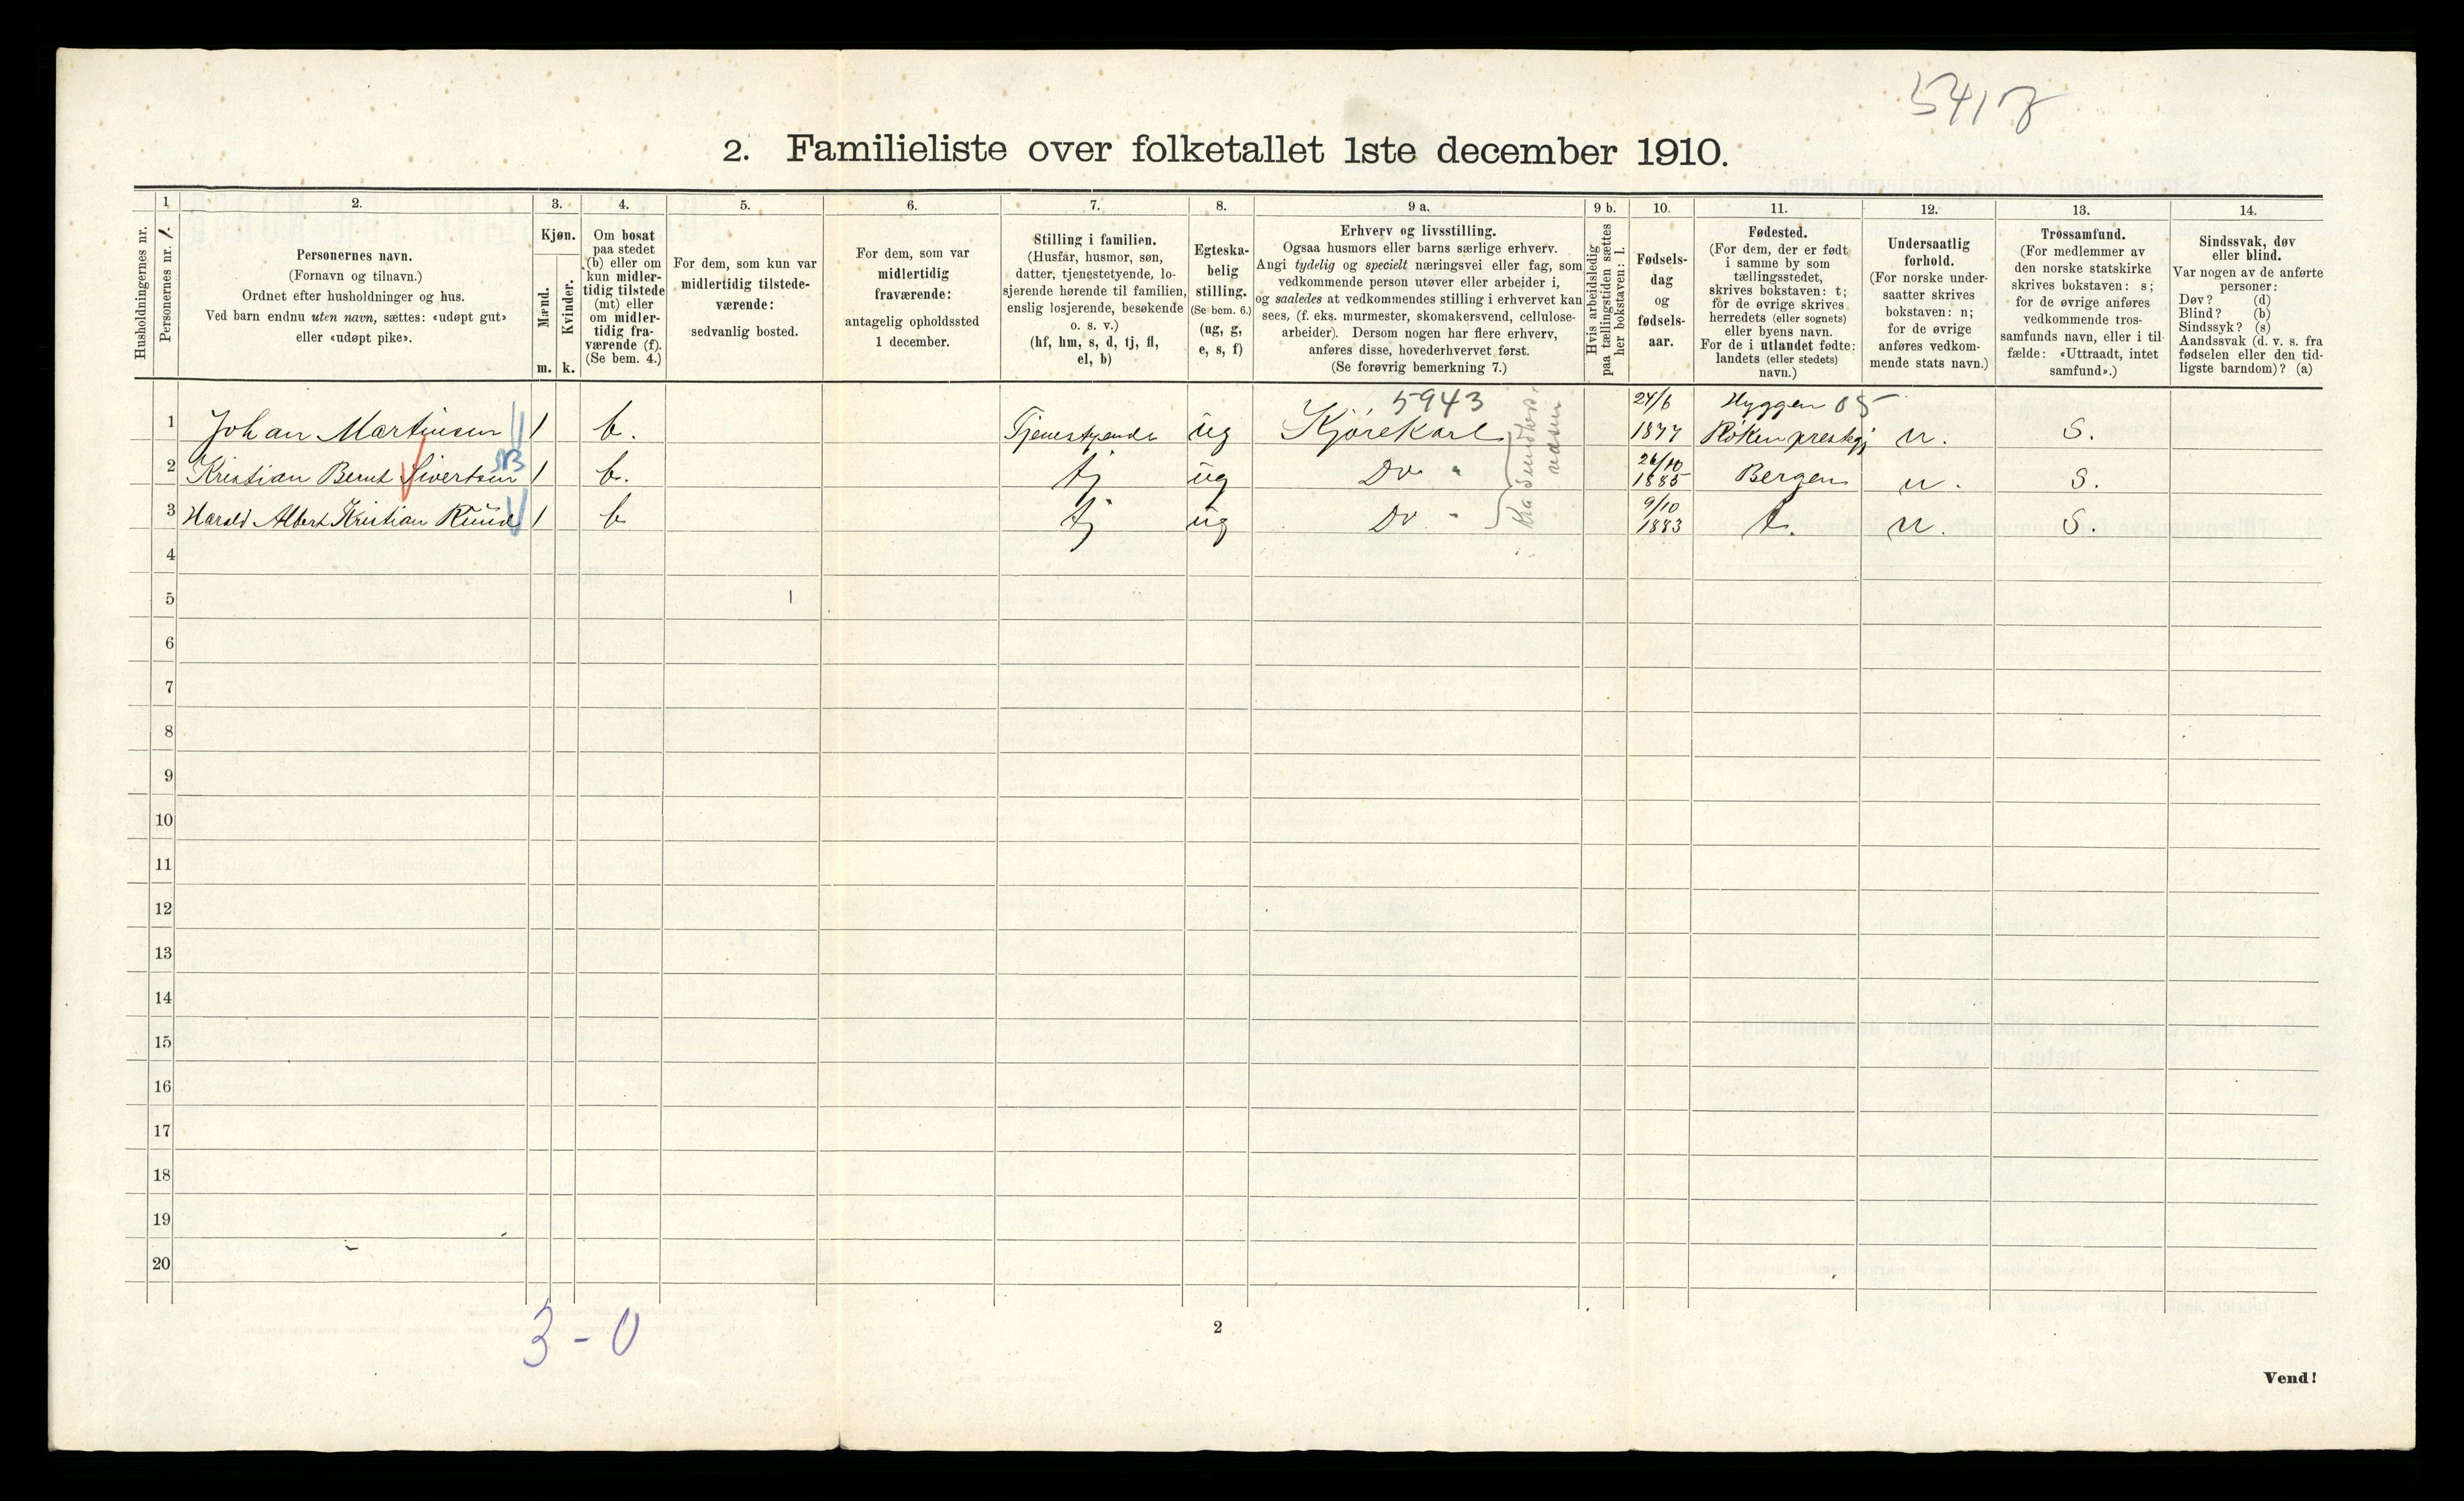 2. Familieliste over folketallet 1ste december 1910.
Husholdningernes nr.
1
Personernes nr.
2.
Personernes navn.
(Fornavn og tilnavn.)
Ordnet efter husholdninger og hus.
Ved barn endnu uten navn, sættes: «udøpt gut»
eller «udøpt pike».
3.
Kjøn.
Mænd.
Kvinder.
m. k.
4.
Om bosat
paa stedet
(b) eller om
kun midler-
tidig tilstede
(mt) eller
om midler-
tidig fra-
værende (f).
(Se bem. 4.)
5.
For dem, som kun var
midlertidig tilstede-
værende:
sedvanlig bosted.
6.
For dem, som var
midlertidig
fraværende:
antagelig opholdssted
1 december.
7.
Stilling i familien.
(Husfar, husmor, søn,
datter, tjenestetyende, lo-
sjerende hørende til familien,
enslig losjerende, besøkende
o. s. v.)
(hf, hm, s, d, tj, fl,
el, b)
8.
Egteska-
belig
stilling.
(Se bem. 6.)
(ug, g,
e, s, f)
9 a.
Erhverv og livsstilling.
Ogsaa husmors eller barns særlige erhverv.
Angi tydelig og specielt næringsvei eller fag, som
vedkommende person utøver eller arbeider i,
og saaledes at vedkommendes stilling i erhvervet kan
sees, (f. eks. murmester, skomakersvend, cellulose-
arbeider). Dersom nogen har flere erhverv,
anføres disse, hovederhvervet først.
(Se forøvrig bemerkning 7.)
9 b.
Hvis arbeidsledig
paa tællingstiden sættes
her bokstaven: l.
10.
Fødsels-
dag
og
fødsels-
aar.
11.
Fødested.
(For dem, der er født
i samme by som
tællingsstedet,
skrives bokstaven: t;
for de øvrige skrives
herredets (eller sognets)
eller byens navn.
For de i utlandet fødte:
landets (eller stedets)
navn.)
12.
Undersaatlig
forhold.
(For norske under-
saatter skrives
bokstaven: n;
for de øvrige
anføres vedkom-
mende stats navn.)
13.
Trossamfund.
(For medlemmer av
den norske statskirke
skrives bokstaven: s;
for de øvrige anføres
vedkommende tros-
samfunds navn, eller i til-
fælde: «Uttraadt, intet
samfund».)
14.
Sindssvak, døv
eller blind.
Var nogen av de anførte
personer:
Døv? (d)
Blind? (b)
Sindssyk? (s)
Aandssvak (d. v. s. fra
fødselen eller den tid-
ligste barndom)? (a)
5943 24/6 Hyggen 05
1 Johan Martinsen 1 b. Tjenestyende ug Kjørekarl 1877 Røken prestegj n. S.
2 Kristian Bernt Sivertsen 1 b. tj ug Do " 26/10 1885 Bergen n. S.
3 Harald Albert Kristian Ruud 1 b tj ug Do " 9/10 1883 t. n. S.
4
5
6
7
8
9
10
11
12
13
14
15
16
17
18
19
20
3 - 0
2
Vend!